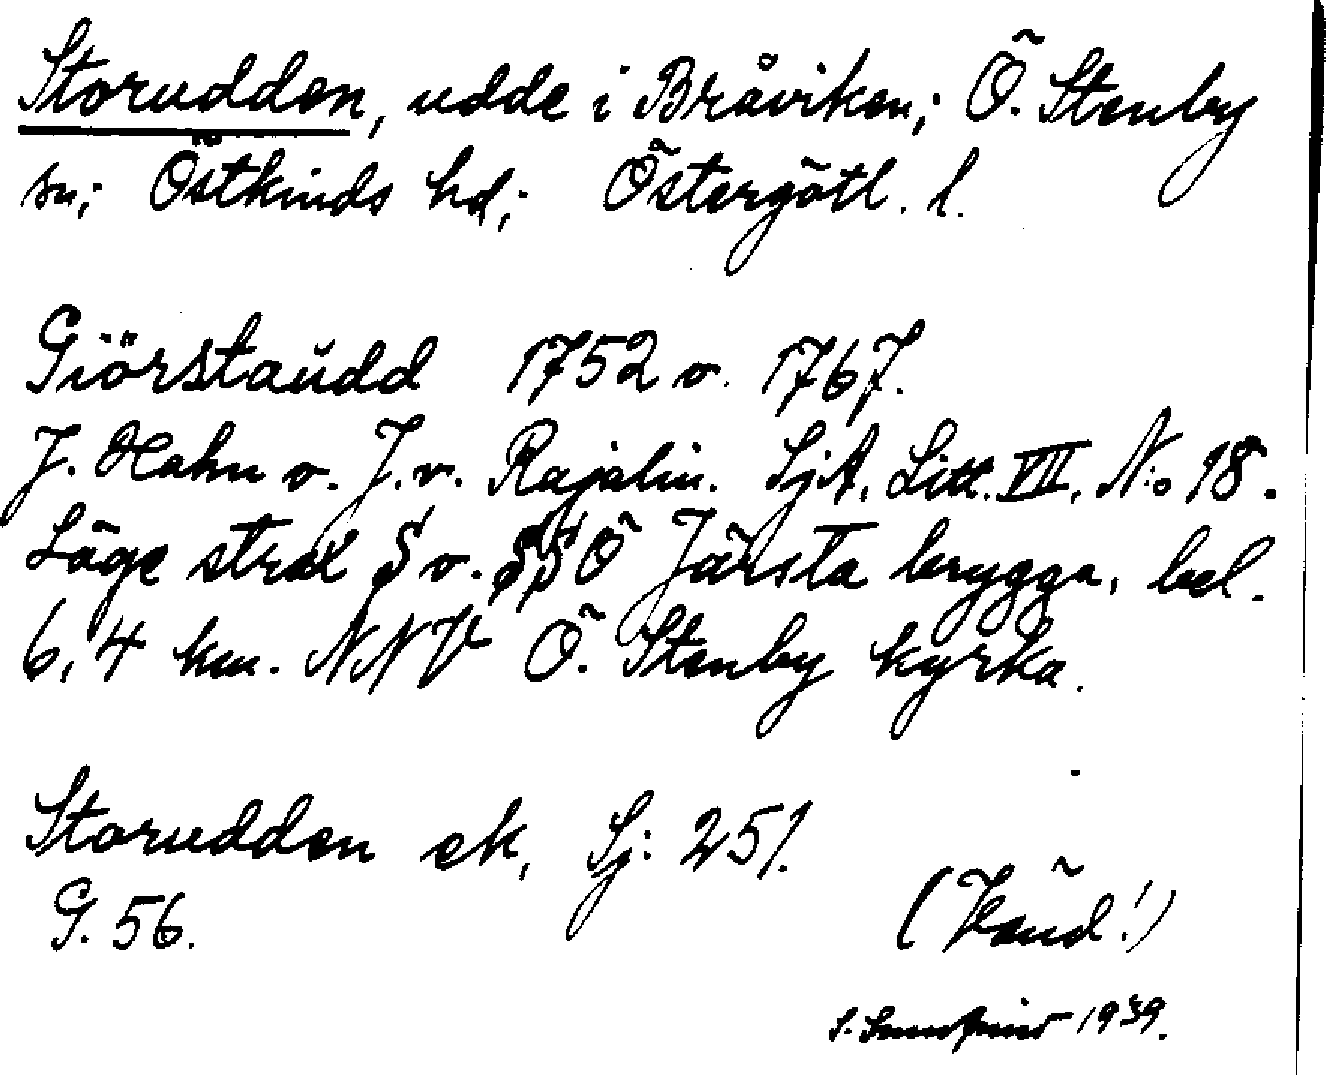 Storudden, udde i Bråviken; Ö. Stenby
sn; Östkinds hd; Östergötl. l.
Giörstaudd 1752 o. 1767.
J. Hahn o. J. v. Rajalin. SjA. Litt. VII, N:o 18.
Läge strax S o. SSO Järsta brygga, bel.
6,4 km. NNV Ö. Stenby kyrka.
Storudden ek, Sj: 251.
G. 56.
(Vänd!)
1939.